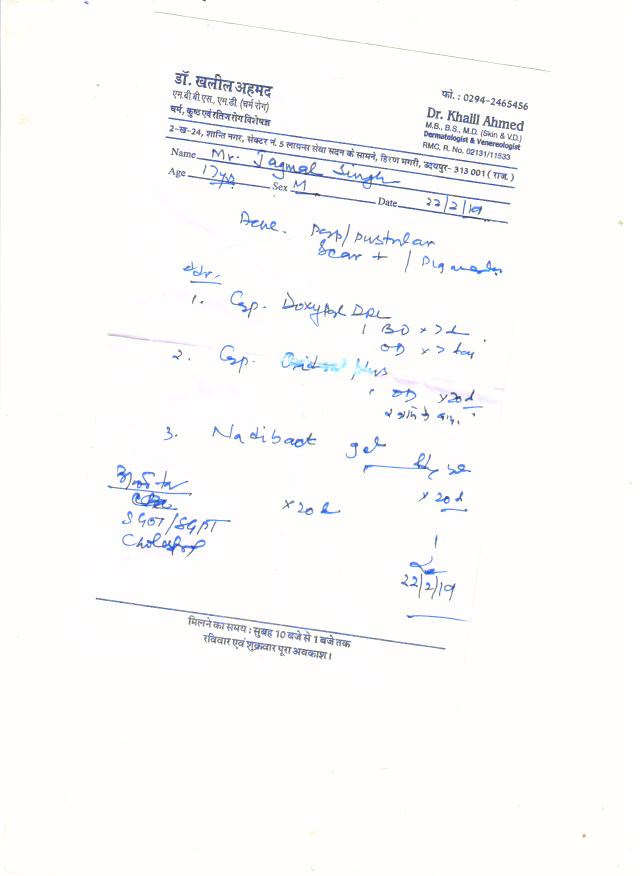 डॉ. खलील अहमद
एम.बी.बी.एस., एम.डी. (चर्म रोग)
चर्म, कुष्ठ एवं रतिज रोग विशेषज्ञ
फो. : 0294-2465456
Dr. Khalil Ahmed
M.B., B.S., M.D. (Skin & V.D.)
Dermatologist & Venereologist
RMC, R. No. 02131/11533
2-ख-24, शान्ति नगर, सेक्टर नं. 5 लायन्स सेवा सदन के सामने, हिरण मगरी, उदयपुर- 313 001 ( राज. )
Name Mr. Jagmal Singh
Age 17yrs Sex M Date 22/2/19
Acne. Pap/Pustular
Scar + /
Adv.
1. Cap.
1 BD x 7d
OD x 7 day
2. Cap.
1 OD x 20d
3. Nadibact gel
x 20d
x 20d
SGOT/SGPT
Cholesterol
22/2/19
मिलने का समय : सुबह 10 बजे से 1 बजे तक
रविवार एवं शुक्रवार पूरा अवकाश।